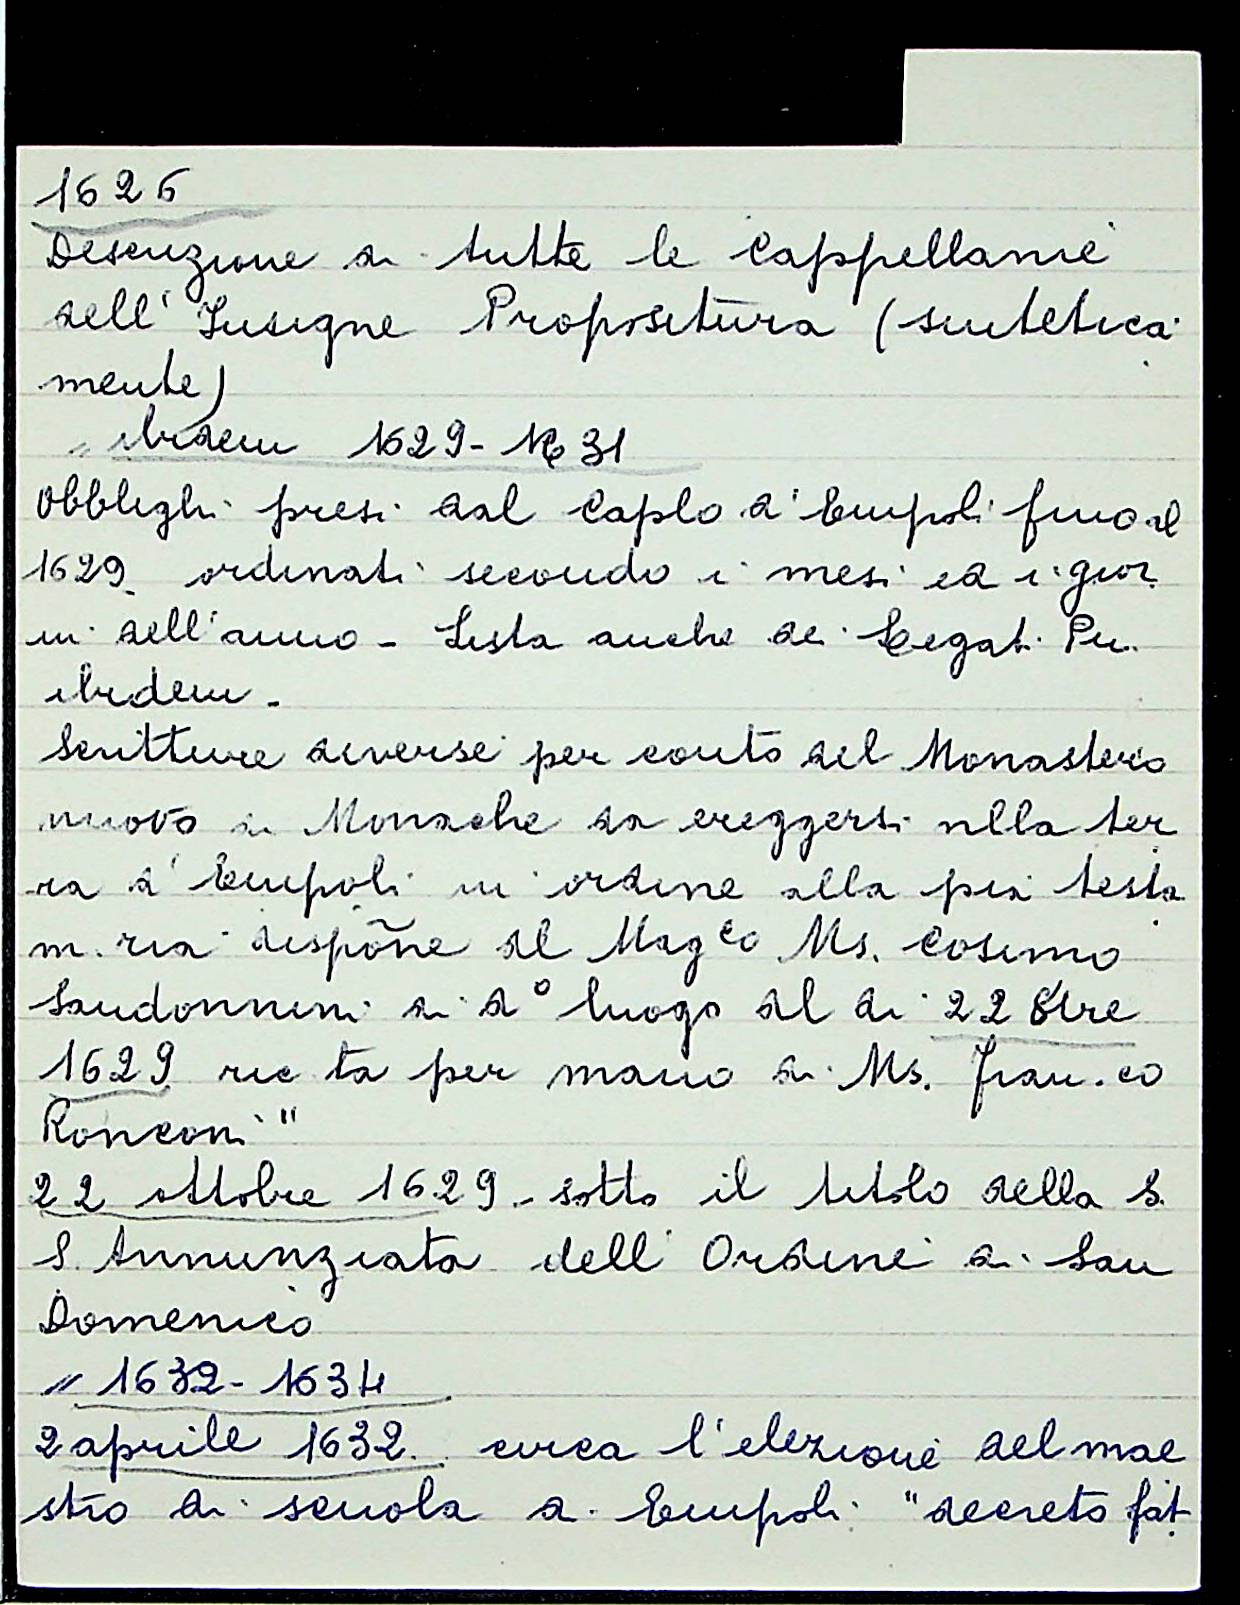 1626
Descrizione di tutte le Cappellanie
dell'Insigne Propositura (sintetica
mente)
" ibidem 1629-1631
Obblighi presi dal Caplo d'Empoli fino al
1629 ordinati secondo i mesi ed i gior
ni dell'anno - Lista anche dei Legati Pii.
ibidem -
Scritture diverse per conto del Monastero
nuovo di Monache da ereggersi nlla ter
ra d'Empoli in ordine alla pia testa
m.ria dispoñe del Mag.co Ms. Cosimo
Sandonnini di d° luogo del di 22 8bre
1629 ric ta per mano di Ms. Fran.co
Ronconi"
22 ottobre 1629 - sotto il titolo della S.
S. Annunziata dell'Ordine di San
Domenico
" 1632-1634
2 aprile 1632. circa l'elezione del mae
stro di scuola a Empoli "decreto fat